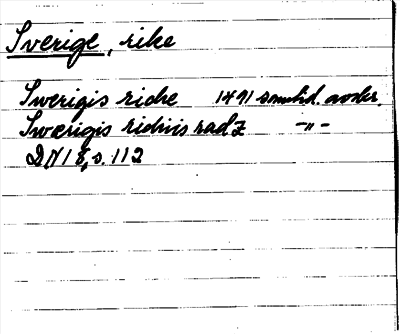 Sverige, rike
Swerigis riche 1491 samtid. avskr.
Swerigis richis radz -"-
DN 18, s. 112